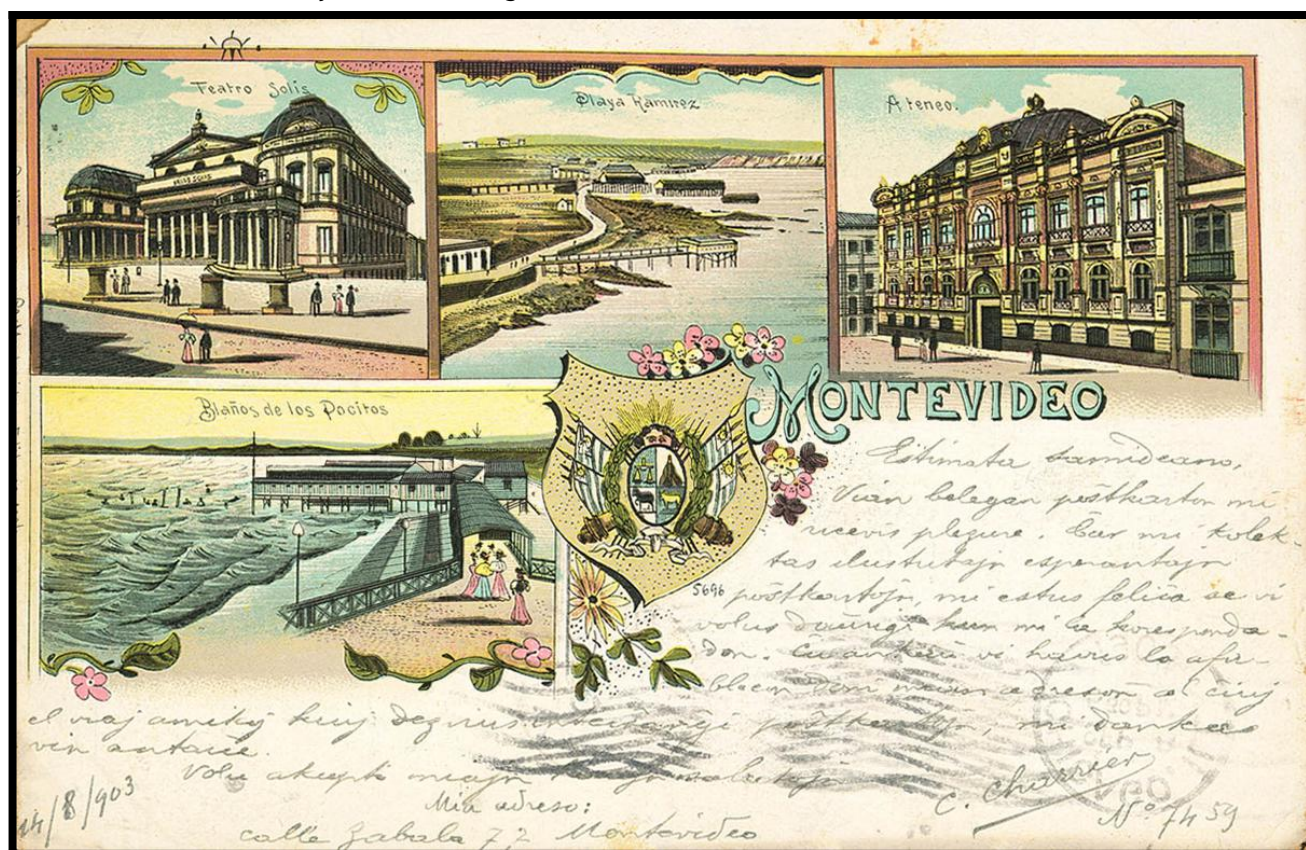 Teatro Solis
Playa Ramirez
Ateneo.
Blaños de los Pocitos
MONTEVIDEO
5696
Estimata samideano,
Vian belegan poŝtkarton mi
ricevis plezure. Ĉar mi kolek-
tas ilustritajn esperantajn
poŝtkartojn, mi estus feliĉa se vi
volus daŭrigi kun mi la koresponda-
don. Ĉu ankaŭ vi havus la afa-
blecon doni mian adreson al ĉiuj
el viaj amikoj kiuj interŝanĝi poŝtkartojn, mi dankas
vin antaŭe.
Volu akcepti miajn salutojn
C. Charrier
Mia adreso:
calle Zabala 72 Montevideo
14/8/903
Nº 7459